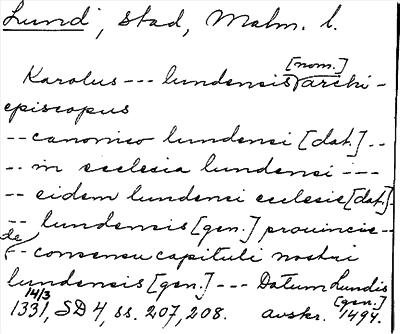 Lund, stad, Malm. l.
Karolus --- lundensis [nom.] archi-
episcopus
-- canonico lundensi [dat.] --
-- in ecclesia lundensi ---
-- eidem lundensi ecclesie [dat.] -
-- lundensis [gen.] prouincie --
-- de consensu capituli nostri
lundensis [gen.] --- Datum Lundis [gen.]
14/3 1331, SD 4, ss. 207, 208. avskr. 1494.